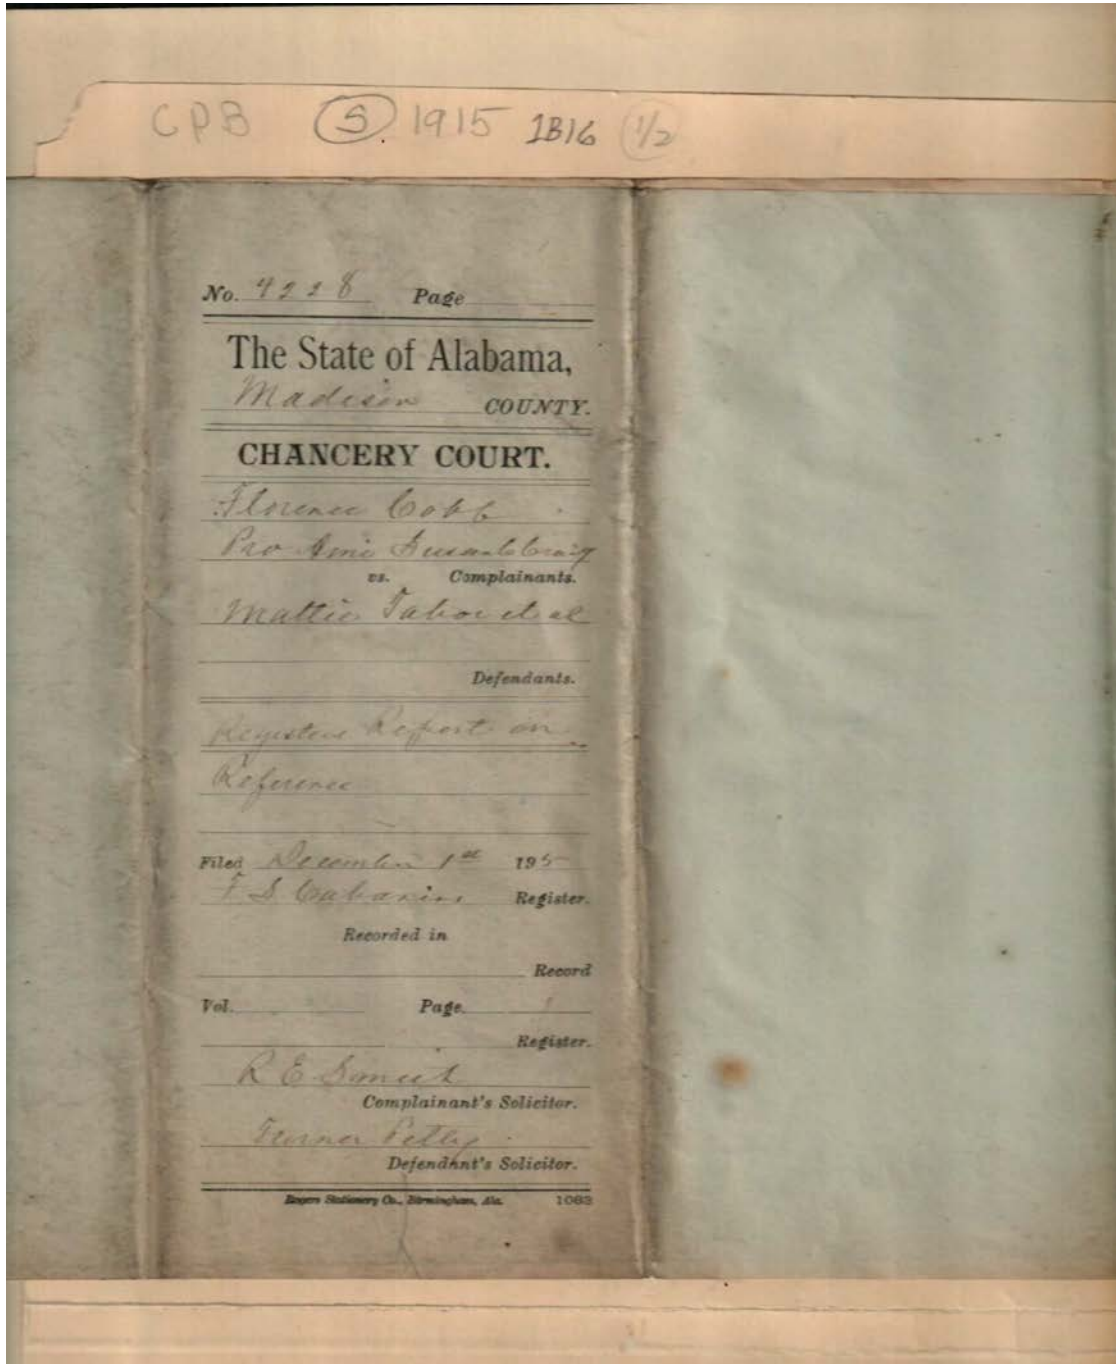 CPB S 1915 1B16 1/2
No. 4228 Page
The State of Alabama,
Madison COUNTY.
CHANCERY COURT.
Florence Cobb
Pro Ami
vs. Complainants.
Mattie Tabor et al
Defendants.
Registers Report on
Reference
Filed December 1st 1915
F S Cabaniss Register.
Recorded in
Record
Vol. Page.
Register.
R E Smith
Complainant's Solicitor.
Petty
Defendant's Solicitor.
Rogers Stationery Co., Birmingham, Ala. 1083